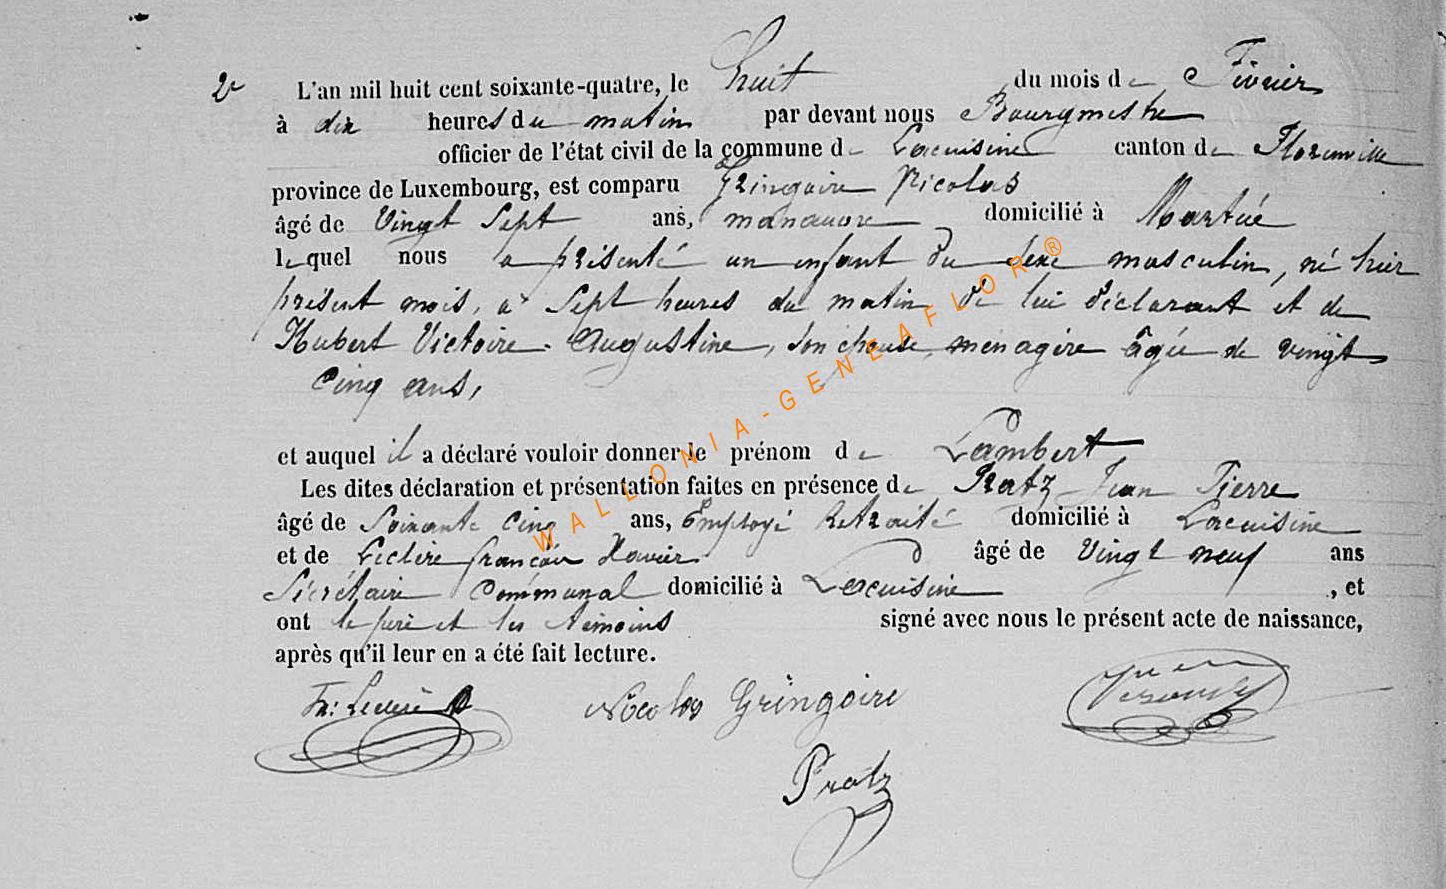 2e L'an mil huit cent soixante-quatre, le huit du mois de Février
à dix heures du matin par devant nous Bourgmestre
officier de l'état civil de la commune de Lacuisine canton de Florenville
province de Luxembourg, est comparu Gringoire Nicolas
âgé de Vingt Sept ans, manœuvre domicilié à Martué
lequel nous a présenté un enfant du sexe masculin, né hier
présent mois, à Sept heures du matin de lui déclarant et de
Hubert Victoire - Augustine, son épouse, ménagère âgée de vingt
cinq ans,
et auquel il a déclaré vouloir donner le prénom de Lambert
Les dites déclaration et présentation faites en présence de Pratz Jean Pierre
âgé de Soixante Cinq ans, Employé Retraité domicilié à Lacuisine
et de Leclère françois Xavier âgé de Vingt neuf ans
Sécrétaire Communal domicilié à Lacuisine, et
ont le père et les témoins signé avec nous le présent acte de naissance,
après qu'il leur en a été fait lecture.
Fr: Leclère Nicolas Gringoire
Pratz
WALLONIA-GENEAFLOR®